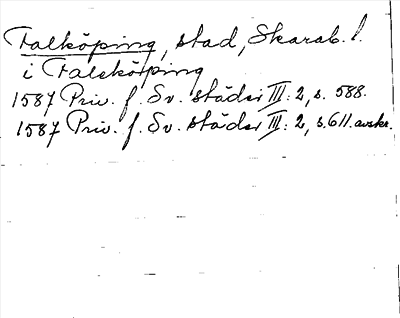 Falköping, stad, Skarab. l.
i Faleköping
1587 Priv. f. Sv. städer III: 2, s. 588.
1587 Priv. f. Sv. städer III: 2, s. 611. avskr.